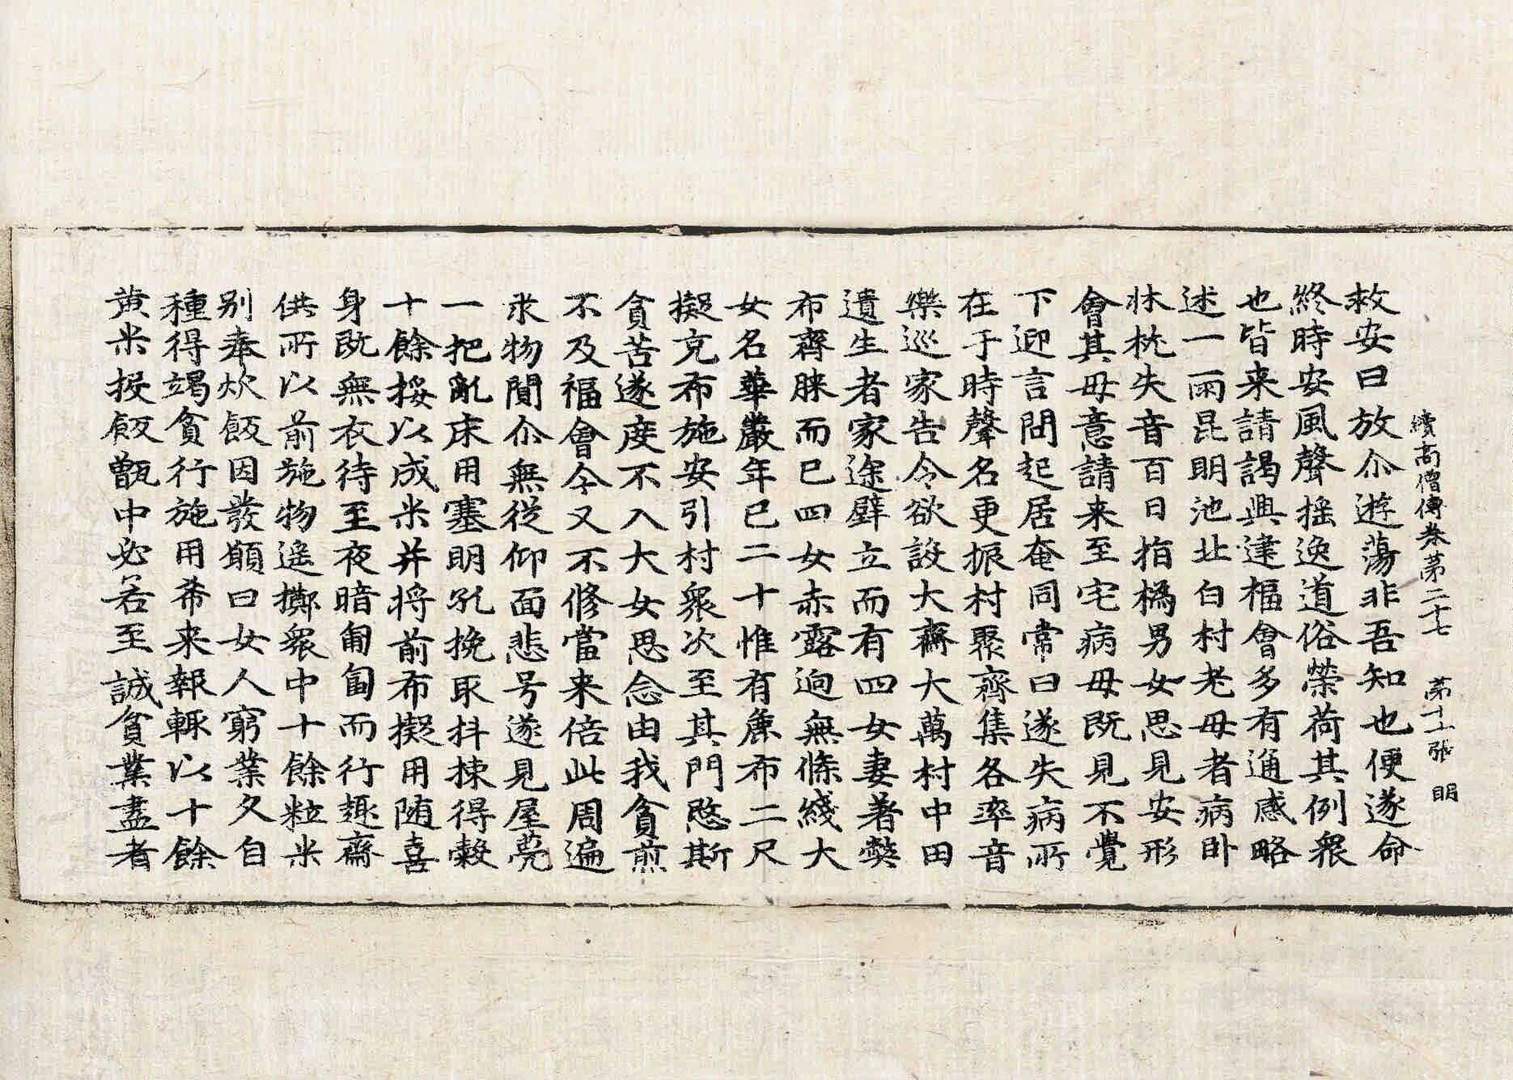 續高僧傳卷第二十七　第十一張　明
救安曰放尒遊蕩非吾知也便遂命
終時安風聲揺逸道俗榮荷其例衆
也皆来請謁興建福會多有通感略
述一兩昆明池北白村老母者病卧
牀枕失音百日指撝男女思見安形
會其母意請来至宅病母既見不覺
下迎言問起居奄同常日遂失病所
在于時聲名更振村聚齊集各率音
樂巡家告令欲設大齋大萬村中田
遺生者家途壁立而有四女妻著弊
布齊膝而已四女赤露逈無條綫大
女名華嚴年已二十惟有麁布二尺
擬充布施安引村衆次至其門愍斯
貧苦遂度不入大女思念由我貧煎
不及福會今又不修當来倍此周遍
求物閴尒無從仰面悲号遂見屋甍
一把亂床用塞明孔挽取抖揀得穀
十餘挼以成米并将前布擬用随喜
身既無衣待至夜暗匍匐而行趣齋
供所以前施物遥擲衆中十餘粒米
别奉炊飯因發願曰女人窮業久自
種得竭貧行施用希来報輙以十餘
黄米投飯甑中必若至誠貧業盡者